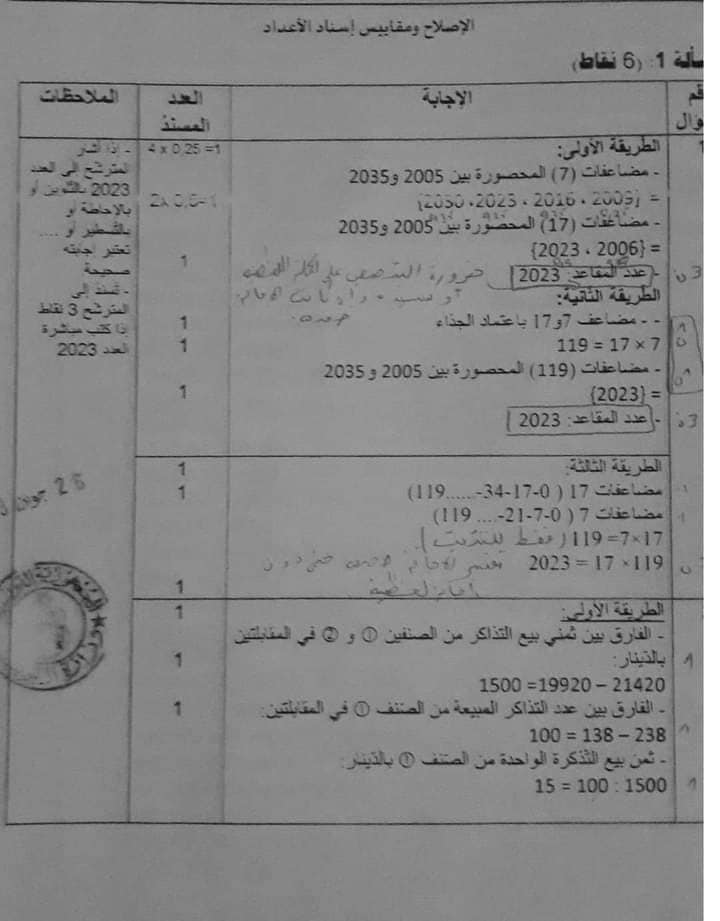 الإصلاح ومقاييس إسناد الأعداد
سألة 1: (6 نقاط)
قم
ؤال
الإجابة
العدد
المسند
الملاحظات
1
الطريقة الأولى:
- مضاعفات (7) المحصورة بين 2005 و2035
= {2009 ، 2016 ، 2023 ، 2030}
- مضاعفات (17) المحصورة بين 2005 و2035
= {2006 ، 2023}
- عدد المقاعد: 2023
ضرورة التنصيص على
4 x 0,25 =1
2x 0,5=1
1
- إذا أشار
المترشح إلى العدد
2023 بالتلوين أو
بالإحاطة أو
بالتسطير أو ....
تعتبر إجابته
صحيحة
- تسند إلى
المترشح 3 نقاط
إذا كتب مباشرة
العدد 2023
الطريقة الثانية:
- - مضاعف 7و17 باعتماد الجذاء
7 × 17 = 119
- مضاعفات (119) المحصورة بين 2005 و2035
= {2023}
- عدد المقاعد: 2023
1
1
1
الطريقة الثالثة:
مضاعفات 17 ( 0-17-34-.....119)
مضاعفات 7 ( 0-7-21-.... 119)
17×7= 119 (فقط للتثبت).
119× 17 = 2023
1
1
1
28 جوان
الطريقة الأولى:
- الفارق بين ثمني بيع التذاكر من الصنفين ① و ② في المقابلتين
بالدينار:
21420 – 19920= 1500
- الفارق بين عدد التذاكر المبيعة من الصنف ① في المقابلتين:
238 – 138 = 100
- ثمن بيع التذكرة الواحدة من الصنف ① بالدينار:
1500 : 100 = 15
1
1
1